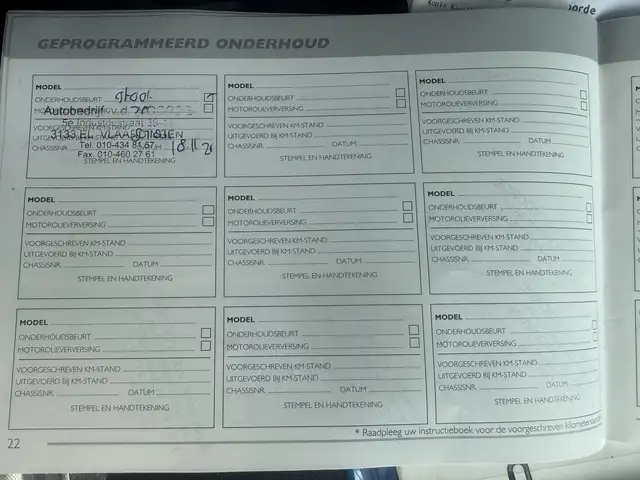 orde
GEPROGRAMMEERD ONDERHOUD
MODEL
ONDERHOUDSBEURT
Autobedrijf v.d.
5e Industriestraat
3133 EL VLAARDINGEN
Tel. 010-434 84 57
CHASSISNR.
18.11
Fax. 010-460 27 61
STEMPEL EN HANDTEKENING
MODEL
ONDERHOUDSBEURT
MOTOROLIEVERVERSING
VOORGESCHREVEN KM-STAND
UITGEVOERD BIJ KM-STAND
CHASSISNR. DATUM
STEMPEL EN HANDTEKENING
MODEL
ONDERHOUDSBEURT
MOTOROLIEVERVERSING
VOORGESCHREVEN KM-STAND
UITGEVOERD BIJ KM-STAND
CHASSISNR. DATUM
STEMPEL EN HANDTEKENING
MODEL
ONDERHOUDSBEURT
MOTOROLIEVERVERSING
VOORGESCHREVEN KM-STAND
UITGEVOERD BIJ KM-STAND
CHASSISNR. DATUM
STEMPEL EN HANDTEKENING
MODEL
ONDERHOUDSBEURT
MOTOROLIEVERVERSING
VOORGESCHREVEN KM-STAND
UITGEVOERD BIJ KM-STAND
CHASSISNR. DATUM
STEMPEL EN HANDTEKENING
MODEL
ONDERHOUDSBEURT
MOTOROLIEVERVERSING
VOORGESCHREVEN KM-STAND
UITGEVOERD BIJ KM-STAND
CHASSISNR. DATUM
STEMPEL EN HANDTEKENING
MODEL
ONDERHOUDSBEURT
MOTOROLIEVERVERSING
VOORGESCHREVEN KM-STAND
UITGEVOERD BIJ KM-STAND
CHASSISNR. DATUM
STEMPEL EN HANDTEKENING
MODEL
ONDERHOUDSBEURT
MOTOROLIEVERVERSING
VOORGESCHREVEN KM-STAND
UITGEVOERD BIJ KM-STAND
CHASSISNR. DATUM
STEMPEL EN HANDTEKENING
MODEL
ONDERHOUDSBEURT
MOTOROLIEVERVERSING
VOORGESCHREVEN KM-STAND
UITGEVOERD BIJ KM-STAND
CHASSISNR. DATUM
STEMPEL EN HANDTEKENING
22
* Raadpleeg uw instructieboek voor de voorgeschreven kilometerstanden